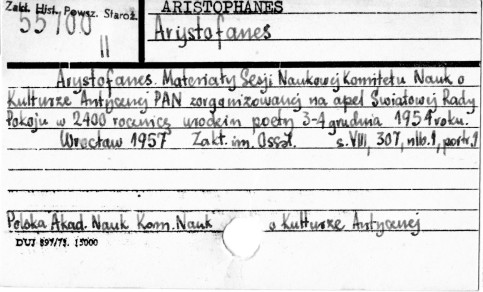 Zakł. Hist. Powsz. Staroż.
55700
II
ARISTOPHANES
Arystofanes
Arystofanes. Materiały Sesji Naukowej Komitetu Nauk o
Kulturze Antycznej PAN zorganizowanej na apel Światowej Rady
Pokoju w 2400 rocznicę urodzin poety 3-4 grudnia 1954 roku.
Wrocław 1957 Zakł. im. Ossol. s. VIII, 307, nlb. 1, portr. 1
Polska Akad. Nauk Kom. Nauk o Kulturze Antycznej
DUJ 897/73. 15000